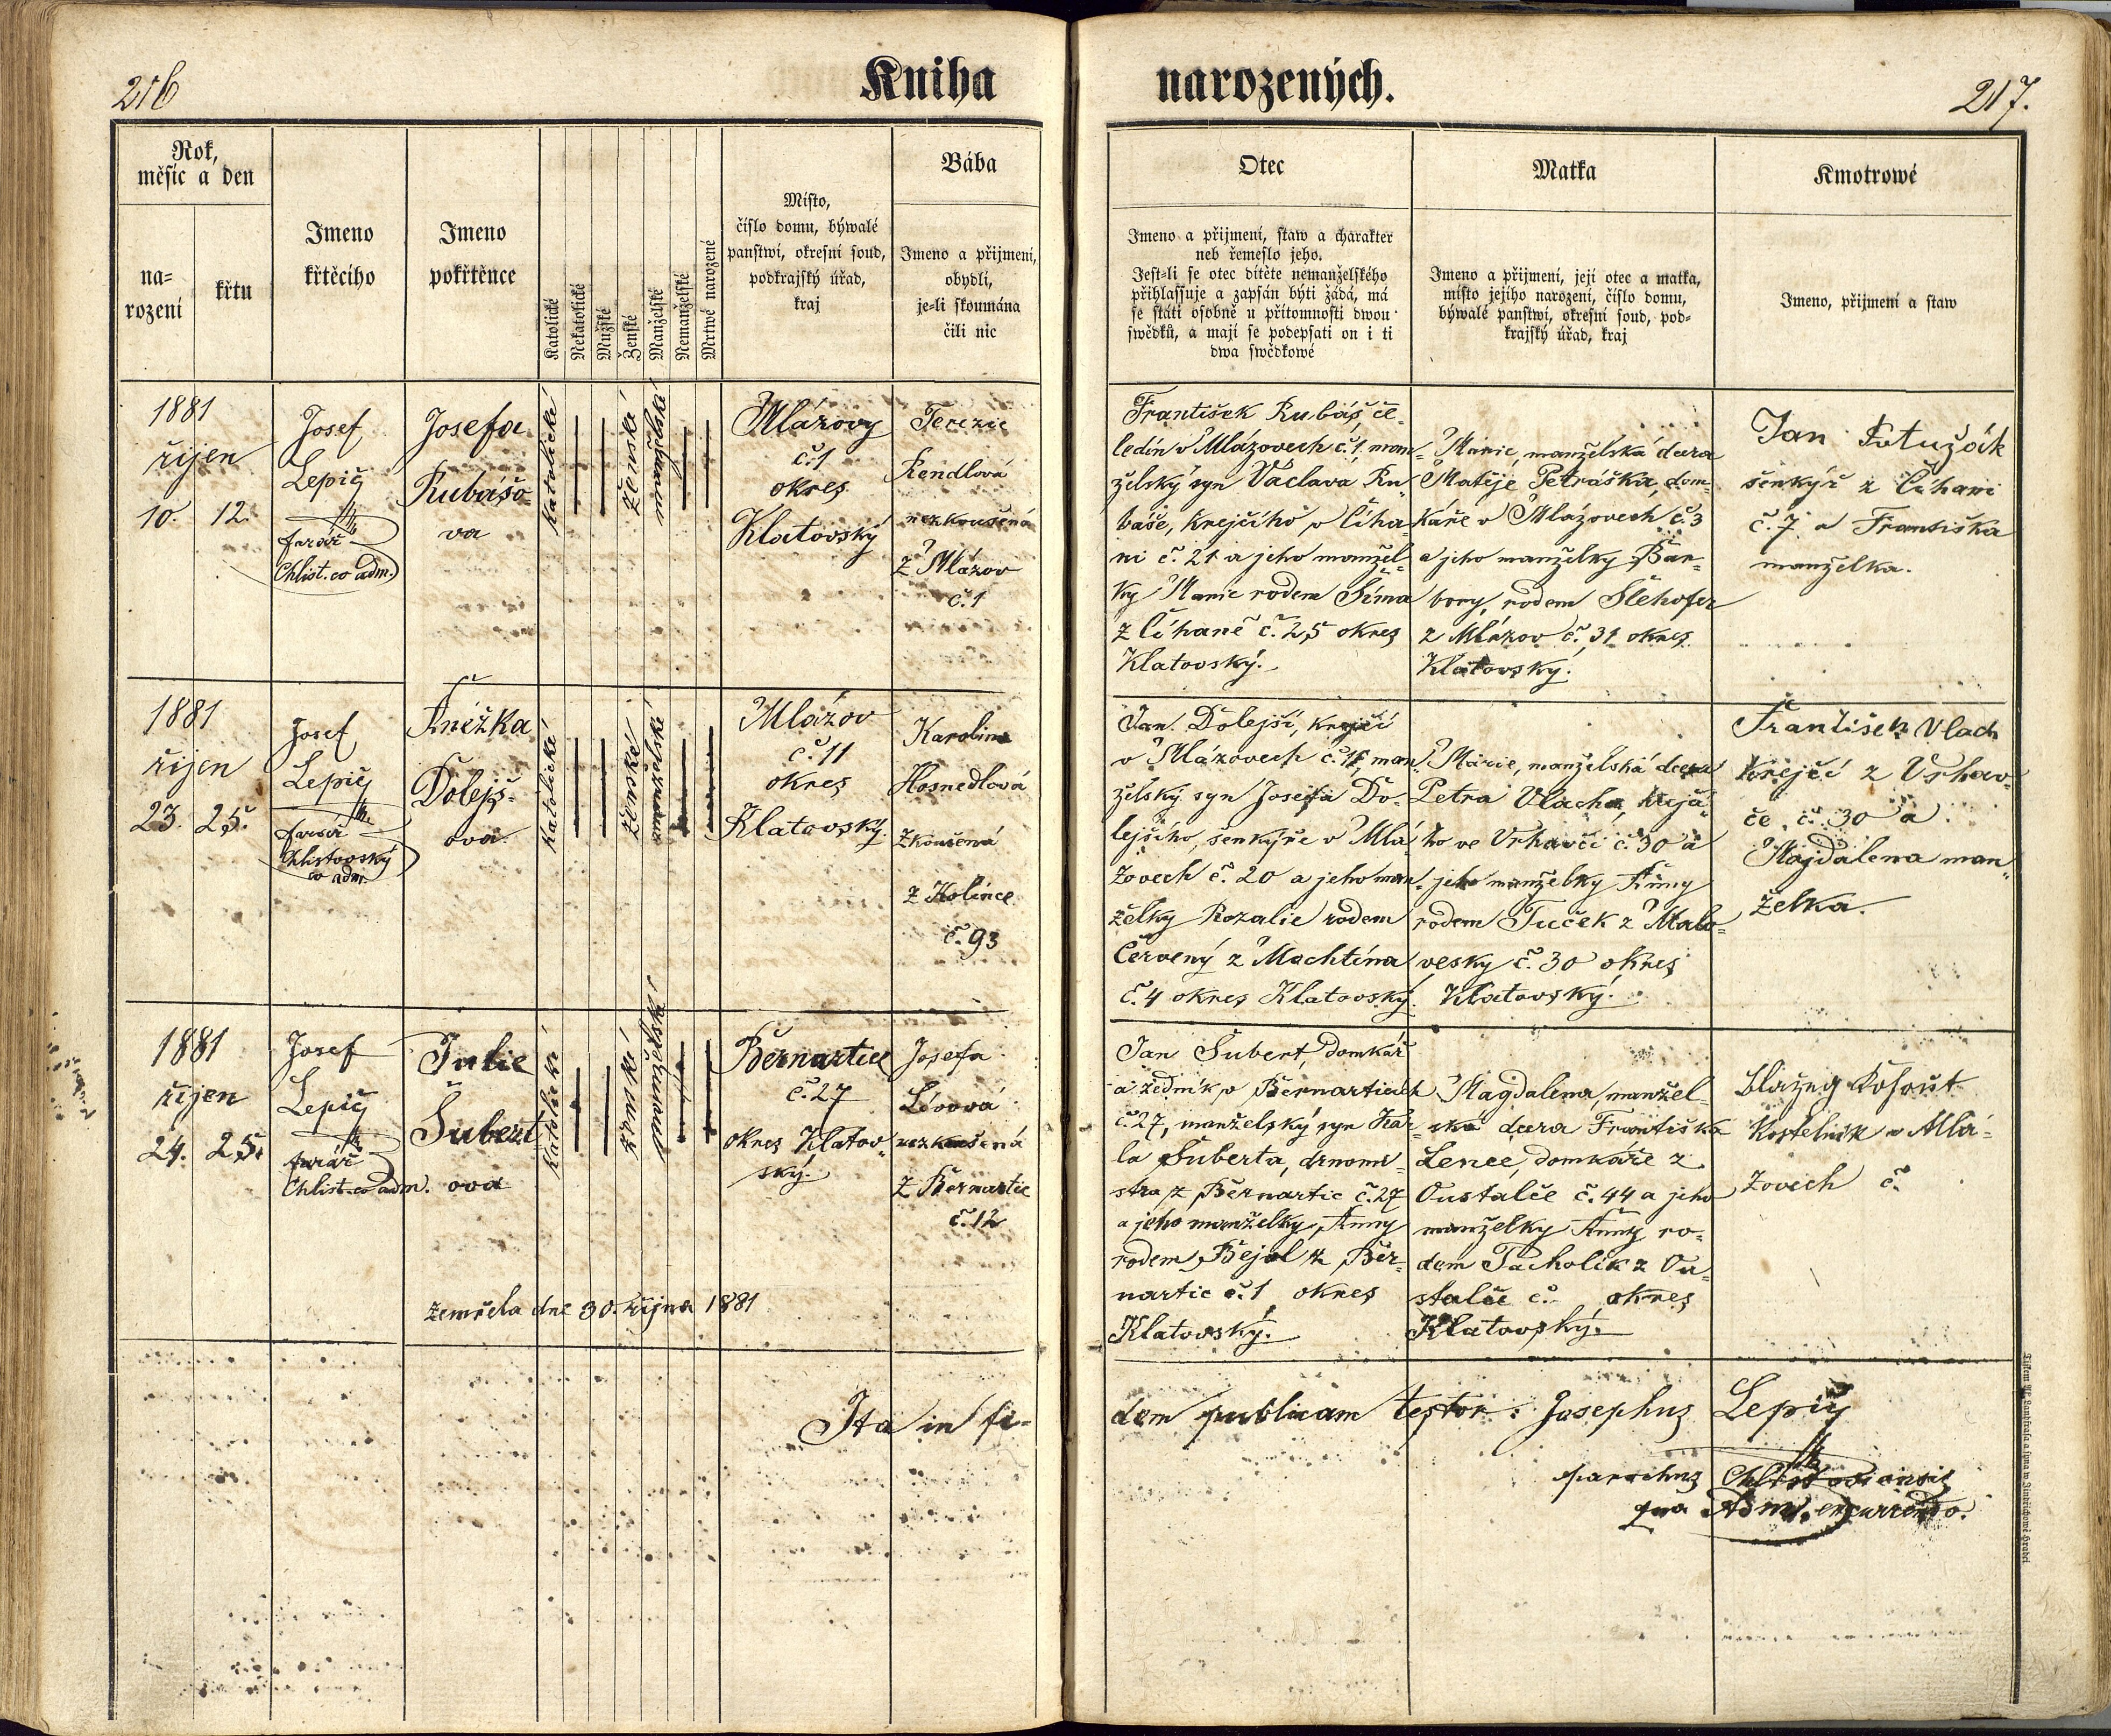 216
Kniha
narozených.
217.
Rok,
měsíc a den
na=
rození
křtu
Jmeno
křtěcího
Jmeno
pokřtěnce
Katolické
Nekatolické
Mužské
Ženské
Manželské
Nemanželské
Mrtwé narozené
Místo,
číslo domu, býwalé
panstwí, okresní soud,
podkrajský úřad,
kraj
Bába
Jmeno a přijmení,
obydlí,
je=li skoumána
čili nic
Otec
Jmeno a přijmení, staw a charakter
neb řemeslo jeho.
Jest=li se otec dítěte nemanželského
přihlassuje a zapsán býti žádá, má
se státi osobně u přítomnosti dwou
swědků, a mají se podepsati on i ti
dwa swědkowé
Matka
Jmeno a přijmení, její otec a matka,
místo jejího narození, číslo domu,
býwalé panstwí, okresní soud, pod=
krajský úřad, kraj
Kmotrowé
Jmeno, přijmení a staw
1881
říjen
10. 12.
Josef
Lepič
farář
Chlist. co adm.
Josefa
Rubášo
va
katolické
ženské
manželské
Mlázovy
č. 1
okres
Klatovský
Terezie
Rendlová
nezkoušená
z Mlázov
č. 1
František Rubáš, če-
ledín v Mlázovech č. 1, man=
želský syn Václava Ru=
baše, krejčího v Číha=
ni č. 21 a jeho manžel=
ky Marie rodem Šíma
z Číhaně č. 25 okres
Klatovský.
Marie, manželská dcera
Matěje Petráška, dom=
káře v Mlázovech č. 3
a jeho manželky Bar=
bory, rodem Šlehofer
z Mlázov č. 31 okres
Klatovský.
Jan
šenkýř z Číhani
č. 7 a Františka
manželka.
1881
říjen
23. 25.
Josef
Lepič
farář
Chlistovský
co adm.
Anežka
Dolejš=
ova
katolické
ženské
manželské
Mlázov
č. 11
okres
Klatovský.
Karolina
Hosnedlová
zkoušená
z Kolince
č. 93
Jan Dolejší, krejčí
v Mlázovech č. 11, man=
želský syn Josefa Do=
lejšího, šenkýře v Mlá=
zovech č. 20 a jeho man=
želky Rozalie rodem
Červený z Mochtína
č. 4 okres Klatovský.
Marie, manželská dcera
Petra Vlacha, krejčí=
ho ve Vrhavči č. 30 a
jeho manželky Anny
rodem Tuček z Malo=
vesky č. 30 okres
Klatovský.
František Vlach
krejčí z Vrhav=
če č. 30 a
Majdalena man=
želka.
1881
říjen
24. 25.
Josef
Lepič
farář
Chlist. co adm.
Julie
Šubert
ova
katolické
ženské
manželské
Bernartice
č. 27
okres Klatov=
ský.
Josefa
Lívová
nezkoušená
z Bernartic
č. 12
Jan Šubert, domkář
a zedník v Bernarticích
č. 27, manželský syn Kar=
la Šuberta,
z Bernartic č. 27
a jeho manželky Anny
rodem Bejal z Ber=
nartic č. 1 okres
Klatovský.
Magdalena, manžel=
ská dcera Františka
Lence, domkáře z
Oustalče č. 44 a jeho
manželky Anny ro=
dem Pacholík z Ou=
stalče č. okres
Klatovský.
Blažej Košařt
Kostelník v Mlá=
zovech č.
zemřela dne 30. října 1881
Ita in fi-
dem publicam testor: Josephus Lepič
parochus Chlistoviensis
qua Adm. excurrendo.
Tiskem Al. Landfrasa a syna w Jindřichowě Hradci